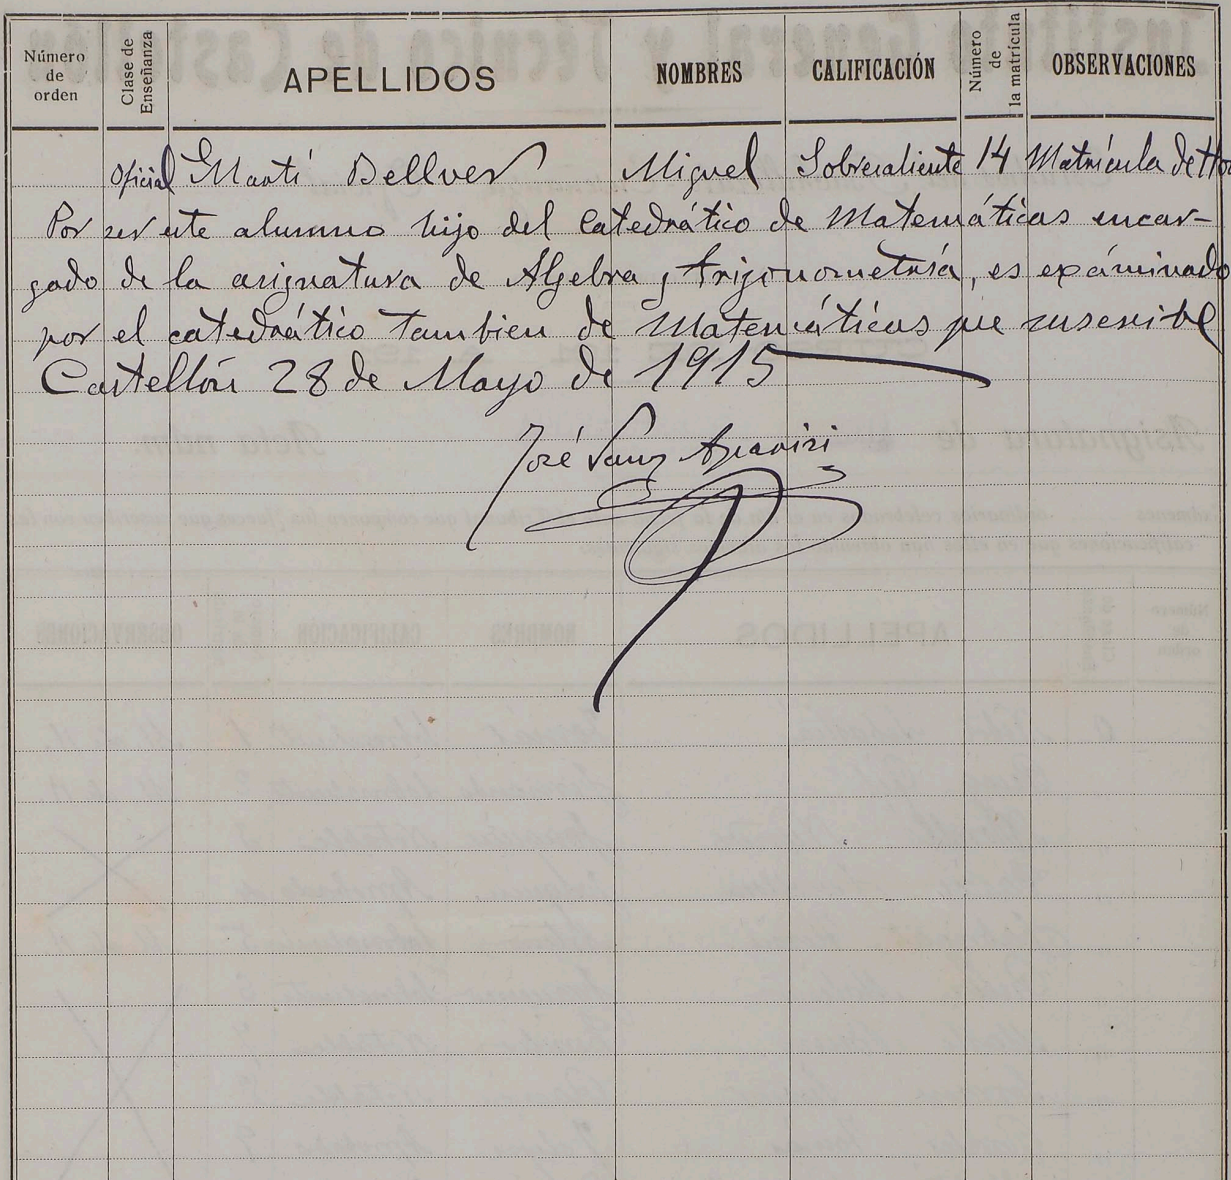 Número de orden
Clase de Enseñanza
APELLIDOS
NOMBRES
CALIFICACIÓN
Número de la matrícula
OBSERVACIONES
Oficial Martí Bellver Miguel Sobresaliente 14 Matrícula de Ho
Por ser este alumno hijo del Catedrático de Matemáticas encar-
gado de la asignatura de Algebra y trigonometría, es examinado
por el catedrático tambien de Matemáticas que suscribe
Castellón 28 de Mayo de 1915
José Sanz Aparisi